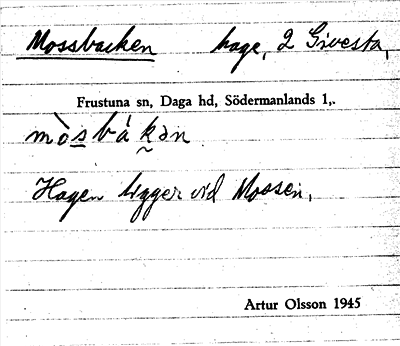 Mossbacken hage, 2 Sivesta,
Frustuna sn, Daga hd, Södermanlands l,.
mòsbákən
Hagen ligger vid Mossen.
Artur Olsson 1945